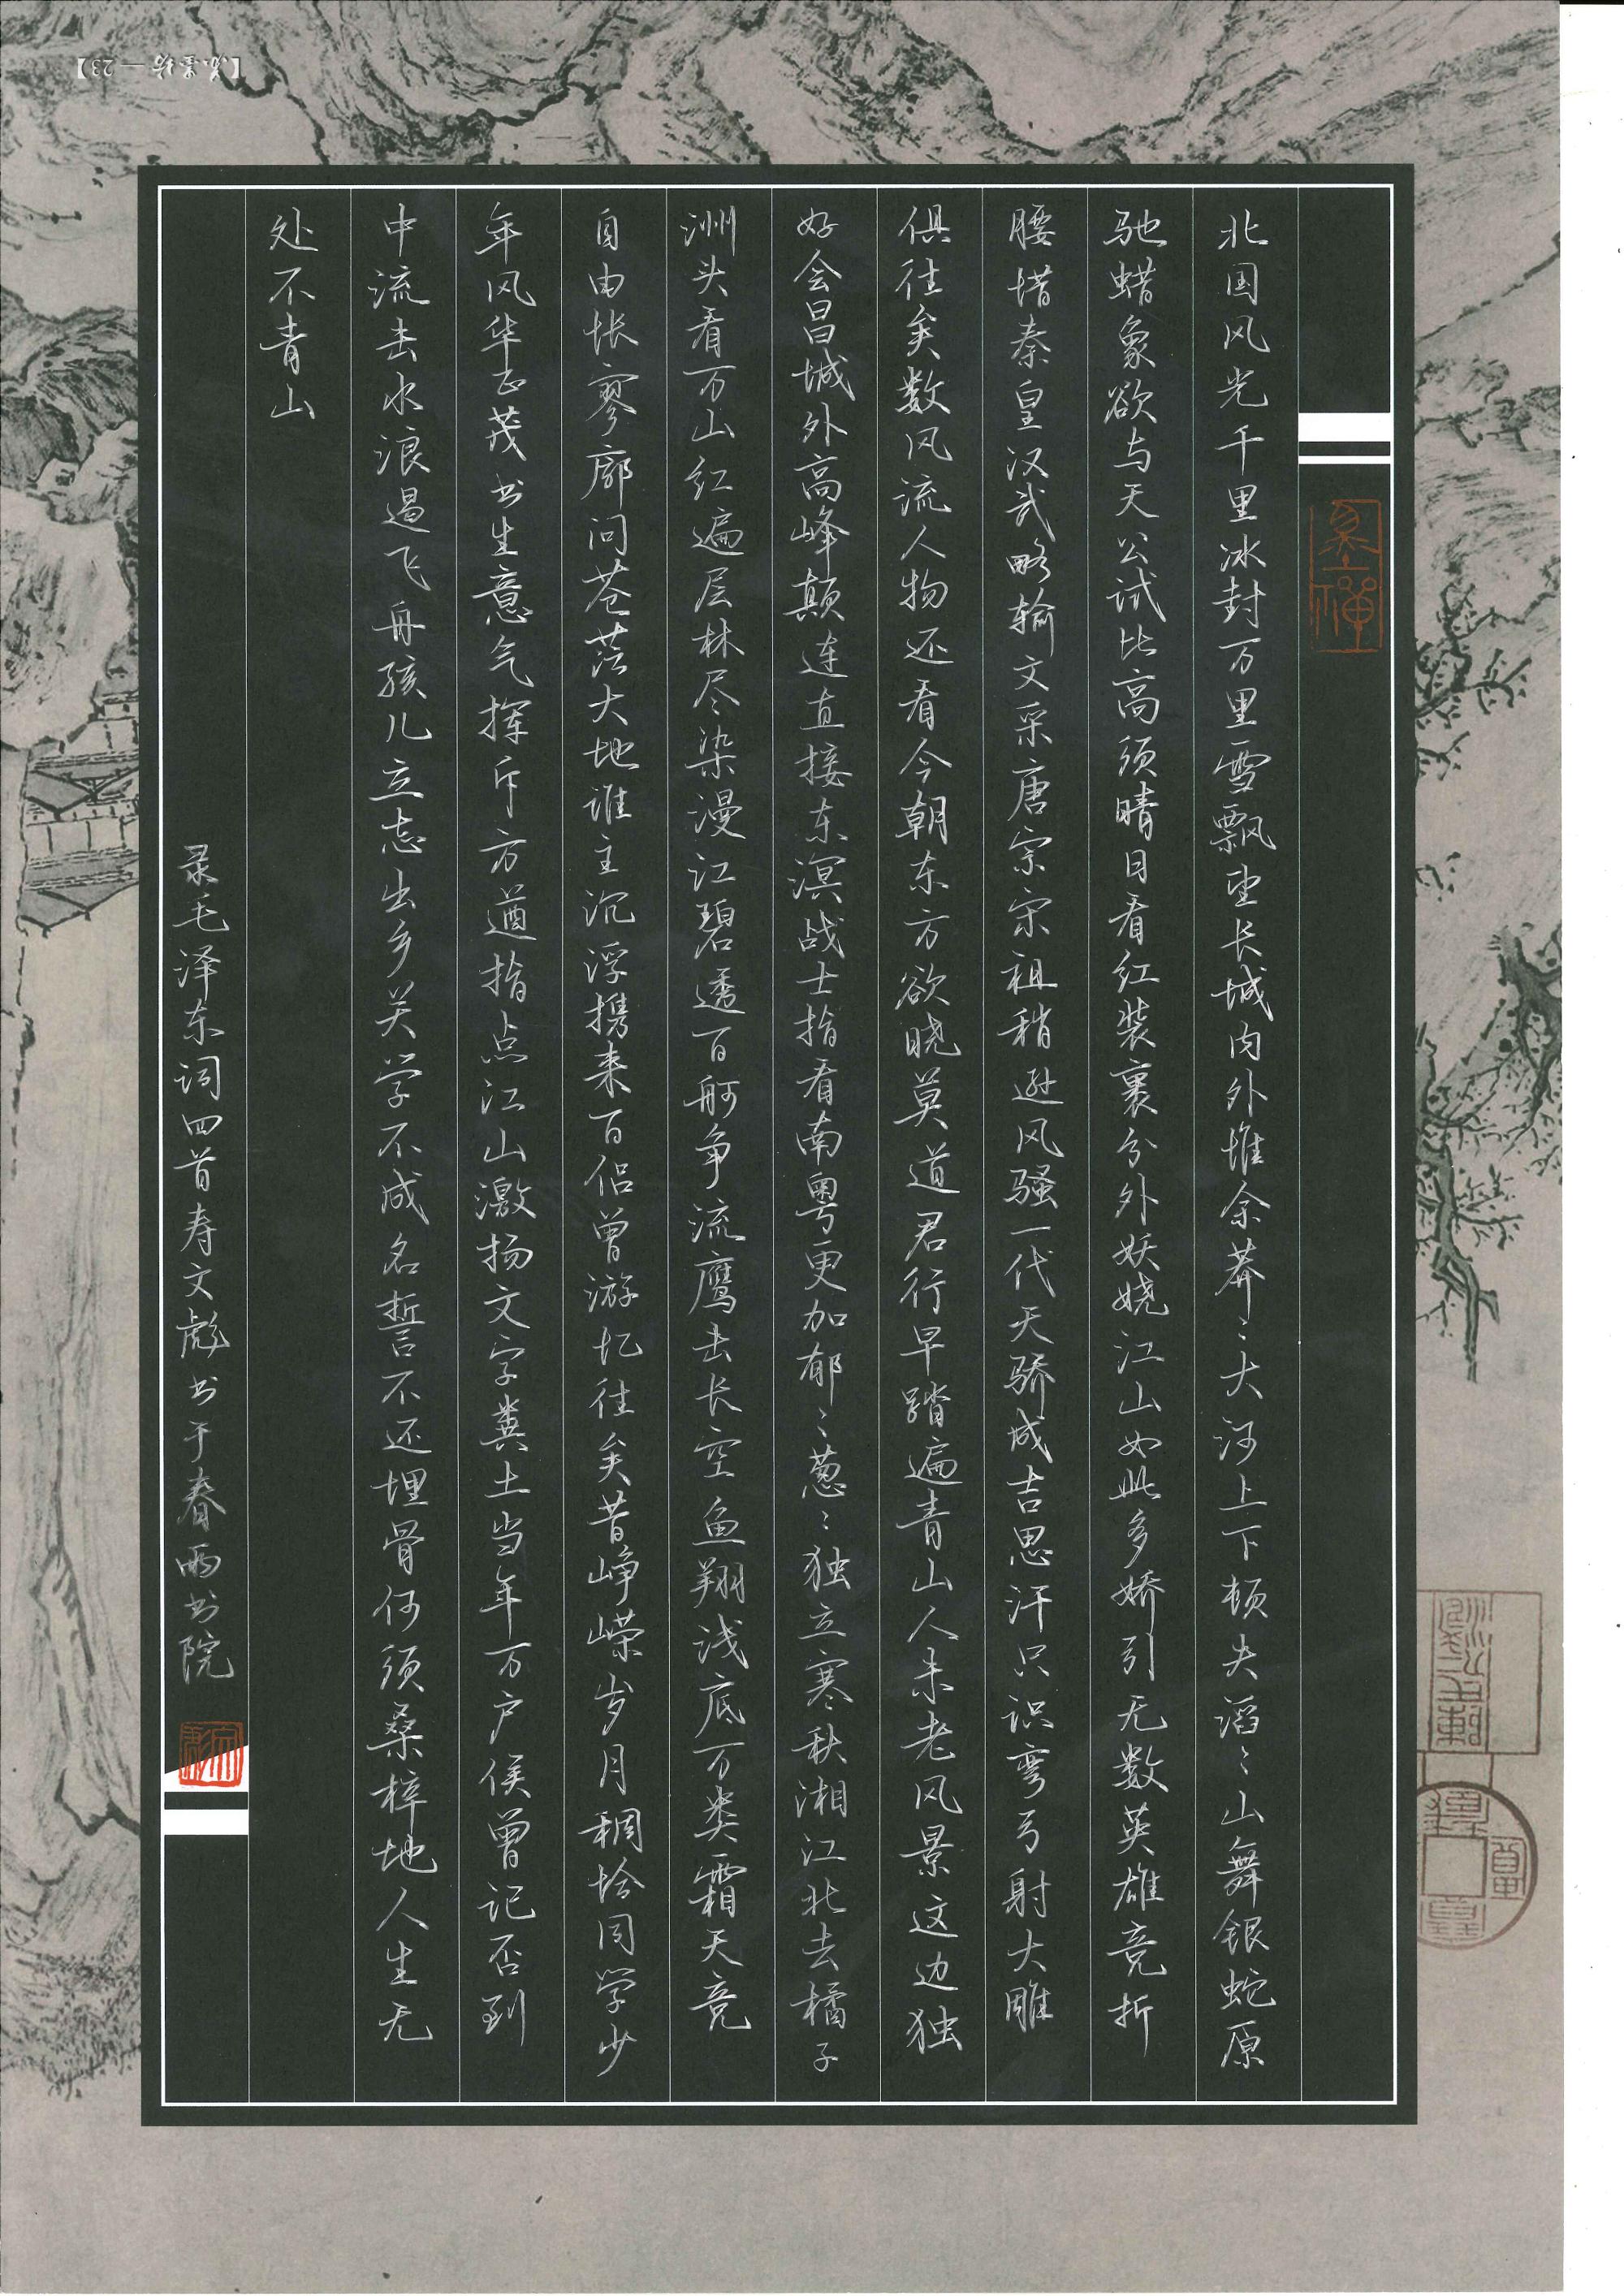 北国风光千里冰封万里雪飘望长城内外惟余莽〻大河上下顿失滔〻山舞银蛇原
驰蜡象欲与天公试比高须晴日看红装裹分外妖娆江山如此多娇引无数英雄竞折
腰惜秦皇汉武略输文采唐宗宋祖稍逊风骚一代天骄成吉思汗只识弯弓射大雕
俱往矣数风流人物还看今朝东方欲晓莫道君行早踏遍青山人未老风景这边独
好会昌城外高峰颠连直接东溟战士指看南粤更加郁〻葱〻独立寒秋湘江北去橘子
洲头看万山红遍层林尽染漫江碧透百舸争流鹰击长空鱼翔浅底万类霜天竞
自由怅寥廓问苍茫大地谁主沉浮携来百侣曾游忆往矣昔峥嵘岁月稠恰同学少
年风华正茂书生意气挥斥方遒指点江山激扬文字粪土当年万户侯曾记否到
中流击水浪遏飞舟孩儿立志出乡关学不成名誓不还埋骨何须桑梓地人生无
处不青山
录毛泽东词四首寿文彪书于春雨书院